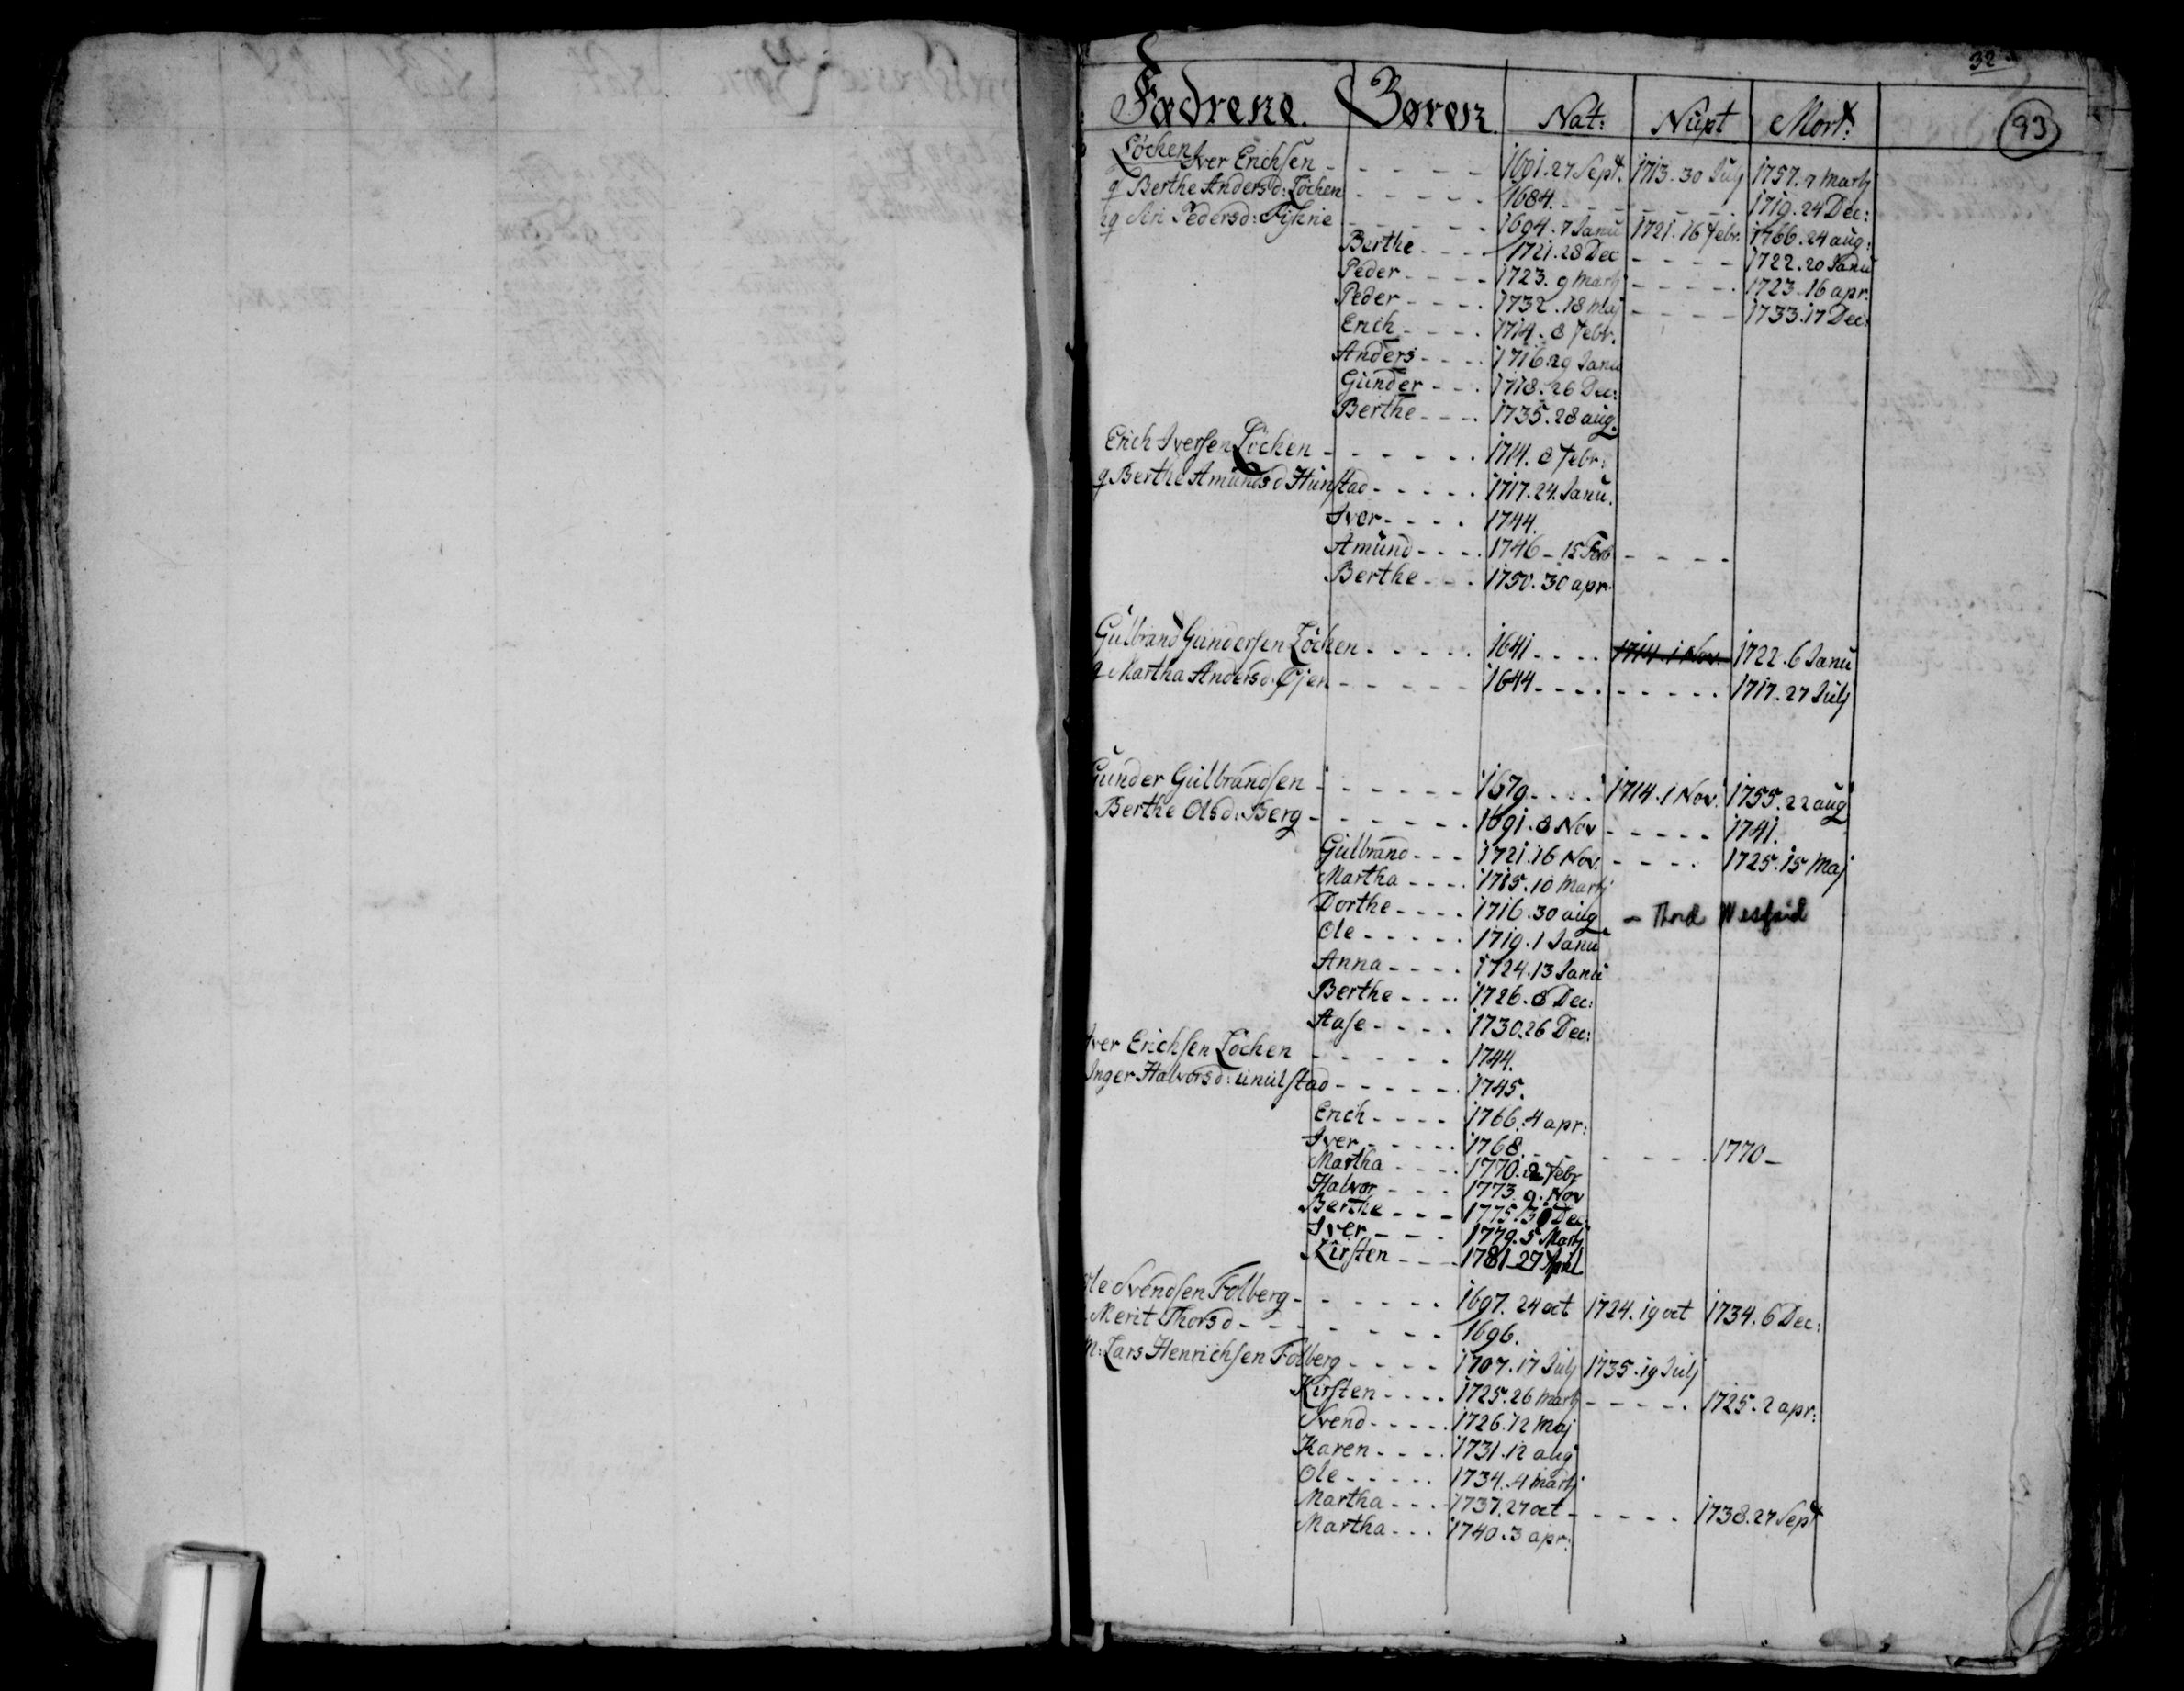 32
93
Fædrene. Børen. Nat: Nupt Mort:
Løchen Iver Erichsen - - - - - - 1691. 27 Sept. 1713. 30 Julj 1757. 7 Martj
q Berthe Andersd: Løchen - - - - - 1684. - - - - - - 1719. 24 Dec:
2q Ari Pedersd: - - - - - - 1694. 7 Janu 1721. 16 Febr. 1766. 24 aug:
Berthe - - - - 1721. 28 Dec - - - - 1722. 20 Janu
Peder - - - - 1723. 9 Martj - - - - 1723. 16 apr.
Peder - - - - 1732. 18 Maj - - - - 1733. 17 Dec:
Erich - - - - 1714. 8 Febr.
Anders - - - - 1716. 29 Janu
Gunder - - - 1718. 26 Dec:
Berthe - - - - 1735. 28 aug.
Erich Iversen Løchen - - - - - - 1714. 8 Febr:
q Berthe Amundsd Hunstad - - - - - 1717. 24. Janu.
Iver - - - - 1744.
Amund - - - - 1746 - 15 - - - -
Berthe - - - 1750. 30 apr.
Gulbrand Gundersen Løchen - - - - - 1641 - - - - 1714. 1 Nov. 1722. 6 Janu
q Martha Andersd. Øjen - - - - - - 1644 - - - - - - - - - 1717. 27 Julj
Gunder Gulbrandsen - - - - - - 1679 - - - - 1714. 1 Nov. 1755. 22 aug
Berthe Olsd: Berg - - - - - - - 1691. 8 Nov - - - - - 1741.
Gulbrand - - - 1721. 16 Nov. - - - - 1725. 15 Maj
Martha - - - - 1715. 10 Martj
Dorthe - - - - 1716. 30 aug - Thord
Ole - - - - - 1719. 1 Janu
Anna - - - - 1724. 13 Janu
Berthe - - - - 1726. 8 Dec:
Aase - - - - 1730. 26 Dec:
Iver Erichsen Løchen - - - - - 1744.
Inger Halvorsd: - - - - - - 1745.
Erich - - - - 1766. 4 apr:
Iver - - - - - 1768. - - - - - - 1770 -
Martha - - - - 1770. 2 Febr
Halvor - - - - 1773. 9. Nov
Berthe - - - 1775. Dec.
Iver - - - - 1779. 5 Martj
Kirsten - - - - 1781 - 27 April
Ole Svendsen Folberg - - - - - - 1697. 24 oct 1724. 19 oct 1734. 6 Dec:
Merit Thorsd - - - - - - - - 1696.
M: Lars Henrichsen Folberg - - - - 1707. 17 Julj 1735. 19 Julj
Kirsten - - - - 1725. 26 Martj - - - - - 1725. 2 apr:
Svend - - - - - 1726. 12 Maj
Karen - - - - 1731. 12 aug
Ole - - - - - 1734. 4 Martj
Martha - - - 1737. 27 oct - - - - - 1738. 27 Sept
Martha - - - 1740. 3 apr: